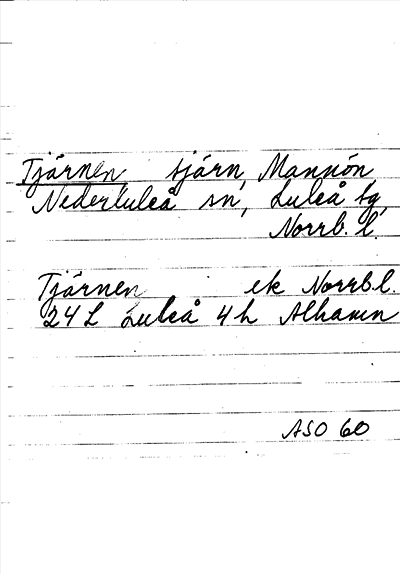 Tjärnen, tjärn, Mannön,
Nederluleå sn, Luleå tg,
Norrb. l.
Tjärnen ek Norrb l.
24 L Luleå 4 h Alhamn
ASO 60